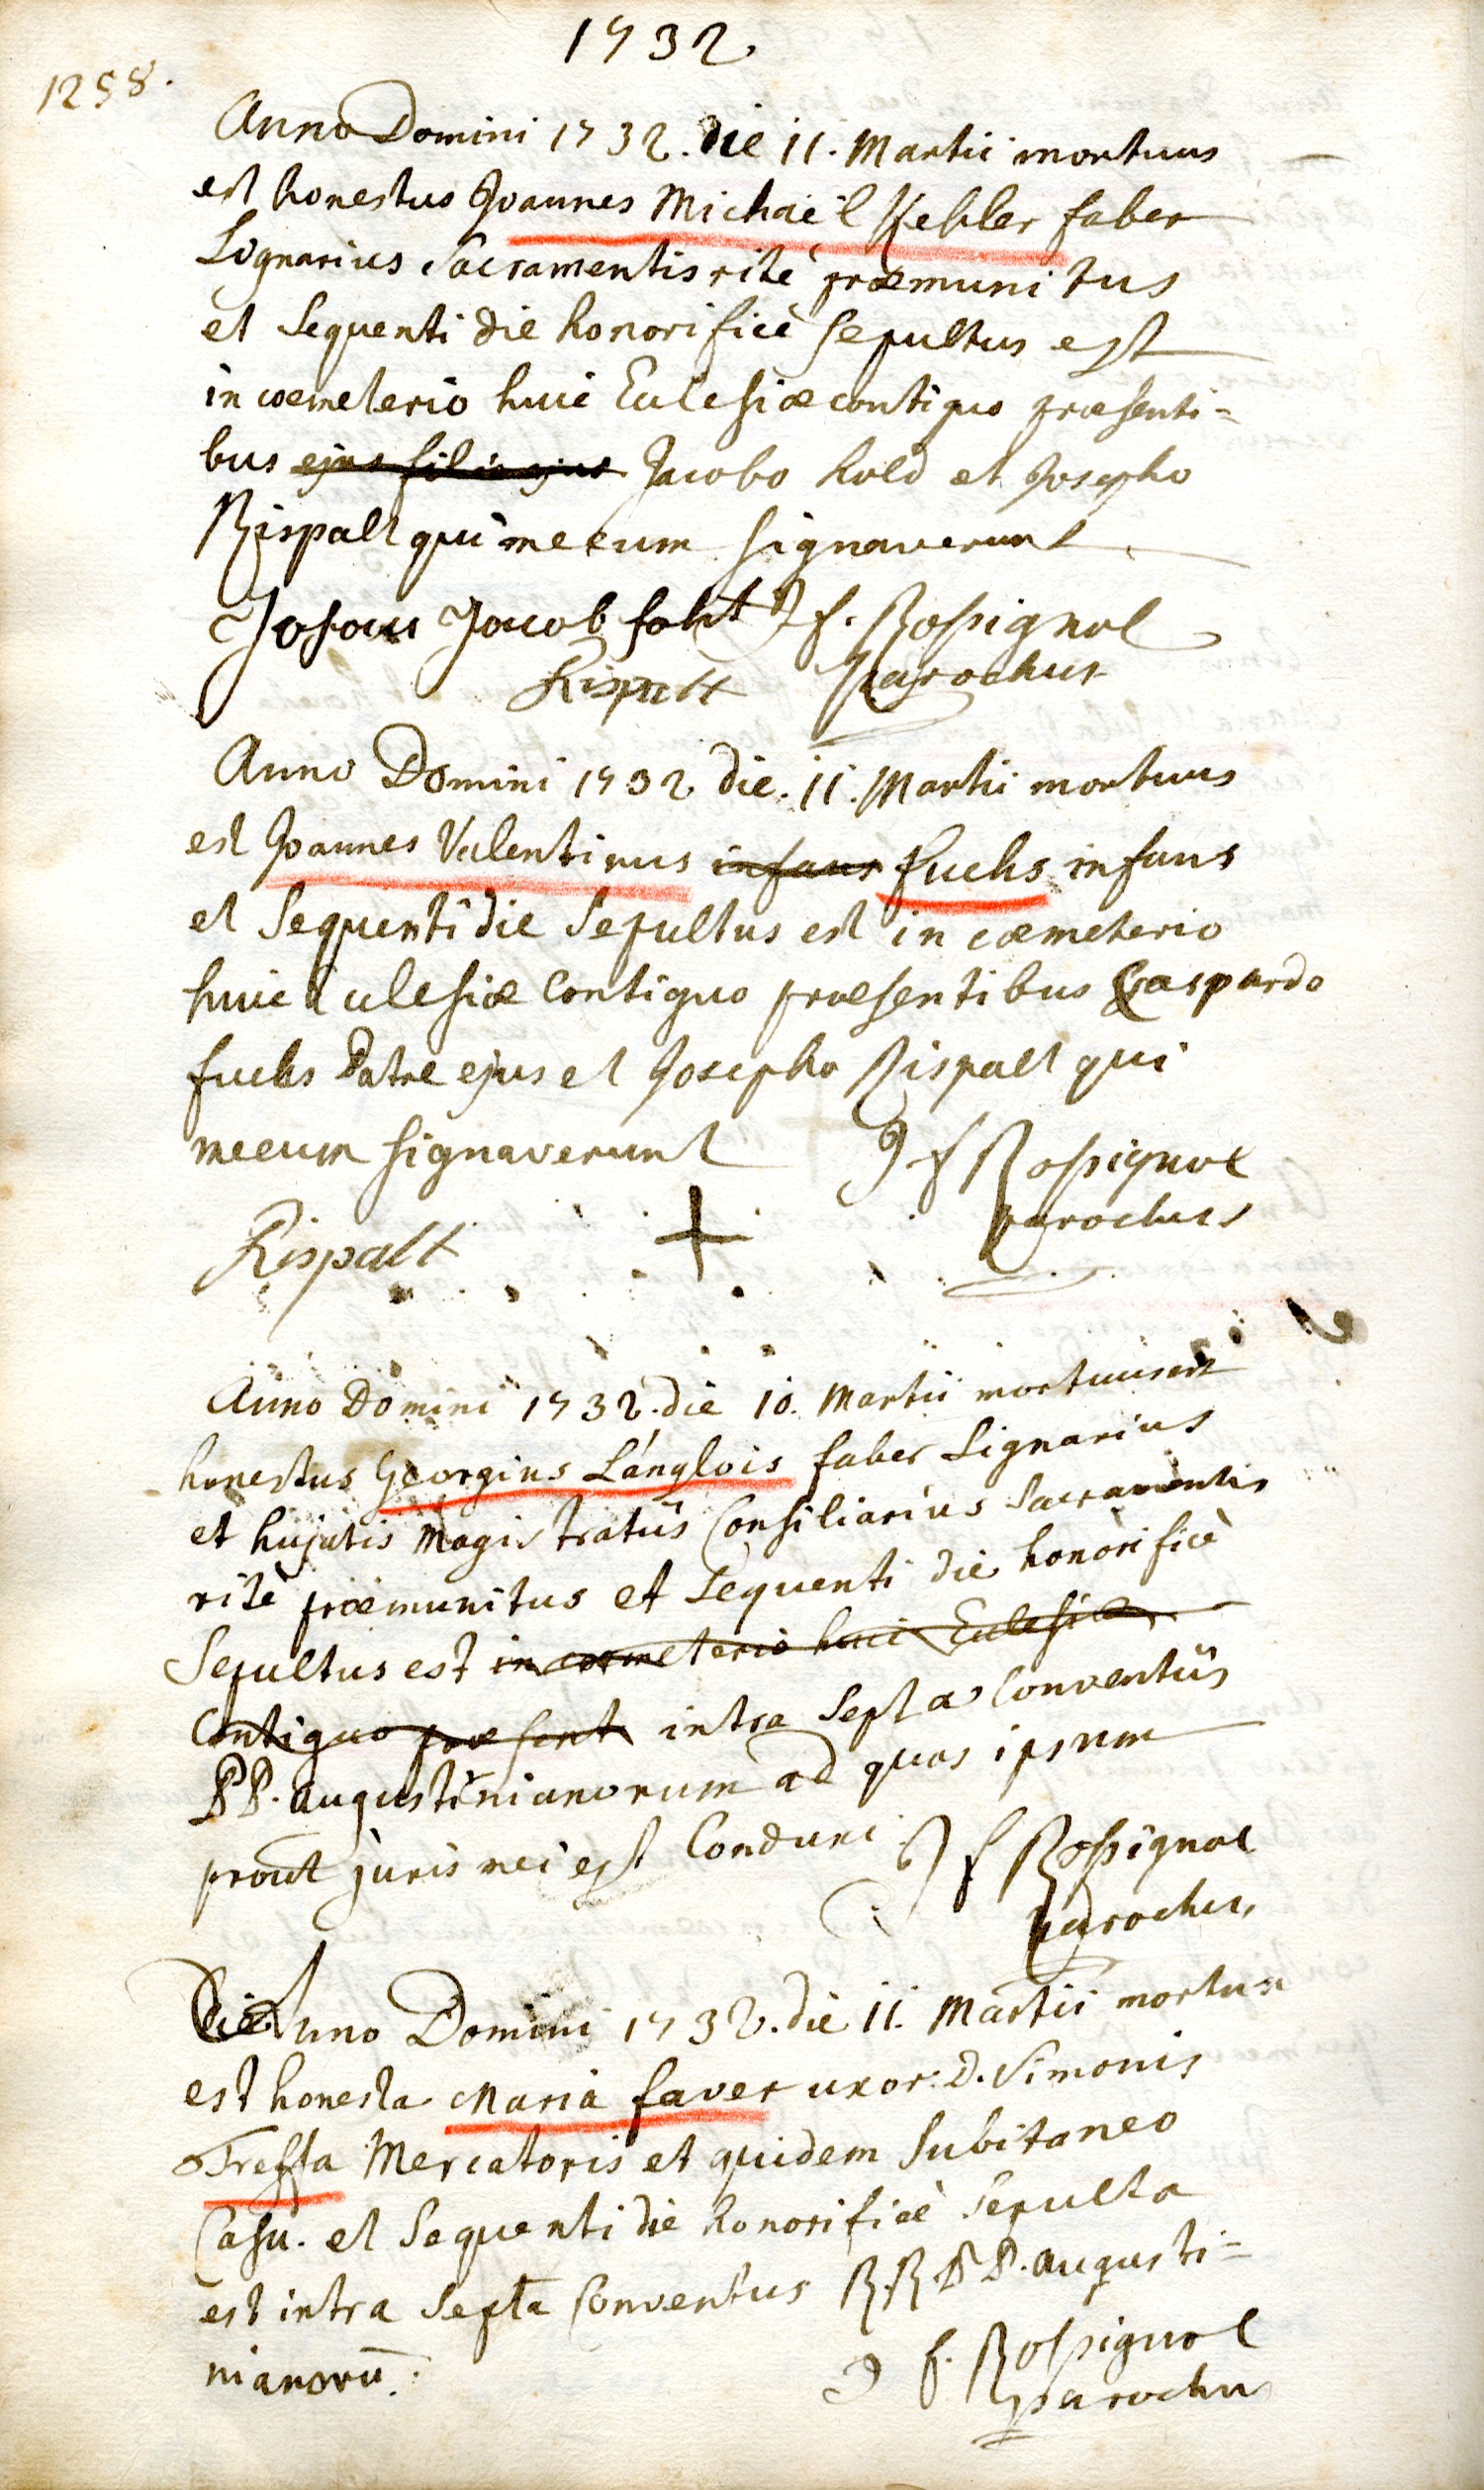 1732
1258.
Anno Domini 1732. die 11. Martii mortuus
est honestus Joannes Michaël Kebler faber
Lignarius Sacramentis ritè præmunitus
et Sequenti die honorificè Sepultus est
in cœmeterio huic Ecclesiæ contiguo præsenti=
bus ejus filio ejus Jacobo hold et Josepho
Rispalt qui mecum signaverunt
Johan Jacob J f. Rossignol
Rispalt parochus
Anno Domini 1732 die. 11. Martii mortuus
est Joannes Valentinus infans fuchs infans
et Sequenti die Sepultus est in cœmeterio
huic Ecclesiæ Contiguo præsentibus Gaspardo
fuchs Patre ejus et Josepho Rispalt qui
mecum signaverunt J f Rossignol
Rispalt + parochus
Anno Domini 1732. die 10. Martii mortuus est
honestus Georgius Langlois faber Lignarius
et hujatis Magistratûs Consiliarius Sacramentis
ritè præmunitus et Sequenti die honorificè
Sepultus est in cœmeterio huic Ecclesiæ
Contiguo præsent intra Septa Conventûs
PP. augustinianorum ad quos ipsum
prout juris mei est Conduxi J f Rossignol
parochus
Anno Domini 1732. die 11. Martii mortua
est honesta Maria faver uxor D. Simonis
Treffta Mercatoris et quidem Subitaneo
Casu. et Sequenti die honorificè Sepulta
est intra Septa Conventus R.R. PP. augusti=
nianorū. J f. Rossignol
parochus